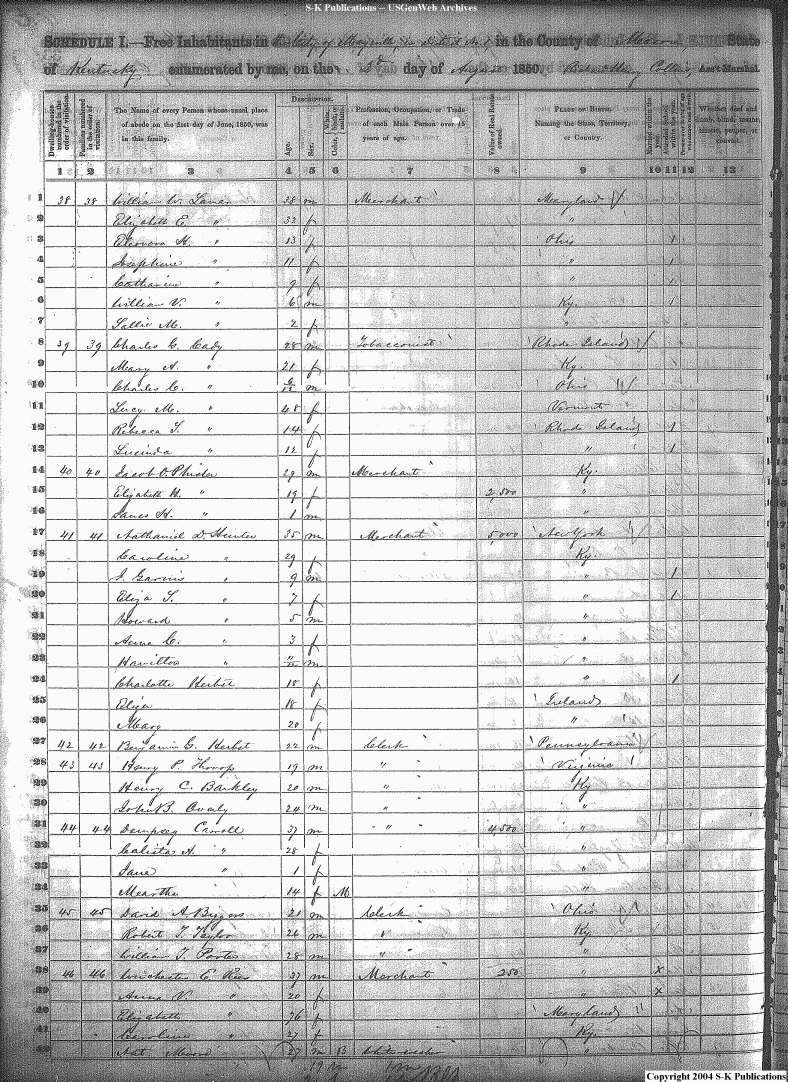 S-K Publications -- USGenWeb Archives
SCHEDULE I.—Free Inhabitants in the City of Maysville, in District No. 1, in the County of Mason State
of Kentucky enumerated by me, on the day of August 1850. Collins, Ass't Marshal.
Dwelling-houses numbered in the order of visitation.
Families numbered in the order of visitation.
The Name of every Person whose usual place of abode on the first day of June, 1850, was in this family.
Description.
Age.
Sex.
Profession, Occupation, or Trade of each Male Person over 15 years of age.
Value of Real Estate owned.
Place of Birth. Naming the State, Territory, or Country.
1 2 3 4 5 6 7 8 9 10 11 12 13
1 38 38 William W. 38 m Merchant Maryland
2 Elizabeth E. " 33 f "
3 Eleonora H. " 13 f Ohio 1
4 Josephine " 11 f " 1
5 Catharine " 9 f " 1
6 William V. " 6 m Ky. 1
7 Sallie M. " 2 f "
8 39 39 Charles C. Cady 28 m Tobacconist Rhode Island
9 Mary A. " 21 f Ky.
10 Charles C. " 6/12 m Ohio
11 Lucy M. " 48 f Vermont
12 Rebecca S. " 14 f Rhode Island 1
13 Lucinda " 12 f " 1
14 40 40 Jacob O. Phister 29 m Merchant Ky.
15 Elizabeth H. " 19 f 2,500 "
16 James H. " 1 m "
17 41 41 Nathaniel D. Hunter 35 m Merchant 5,000 New York
18 Caroline " 29 f Ky.
19 " 9 m " 1
20 Eliza S. " 7 f " 1
21 Howard " 5 m "
22 Anna C. " 3 f "
23 Hamilton " m "
24 Charlotte Herbst 18 f " 1
25 Eliza 18 f Ireland
26 Mary 20 f "
27 42 42 Benjamin G. Herbst 22 m Clerk Pennsylvania
28 43 43 Henry P. 19 m " Virginia
29 Henry C. Barkley 20 m " Ky
30 John B. Overly 24 m " "
31 44 44 Dempsey Carroll 37 m " 4,500 "
32 Calista A. " 28 f "
33 Jane " 1 f "
34 Meartha 14 f M "
35 45 45 David A. Biggers 21 m Clerk Ohio
36 Robert T. Taylor 26 m " Ky
37 William T. Porter 28 m " "
38 46 46 Winchester E. 37 m Merchant 250 " x
39 Anna V. " 20 f " x
40 Elizabeth " 76 f Maryland
41 Caroline " 27 f Ky.
42 Nat. 27 m B "
Copyright 2004 S-K Publications